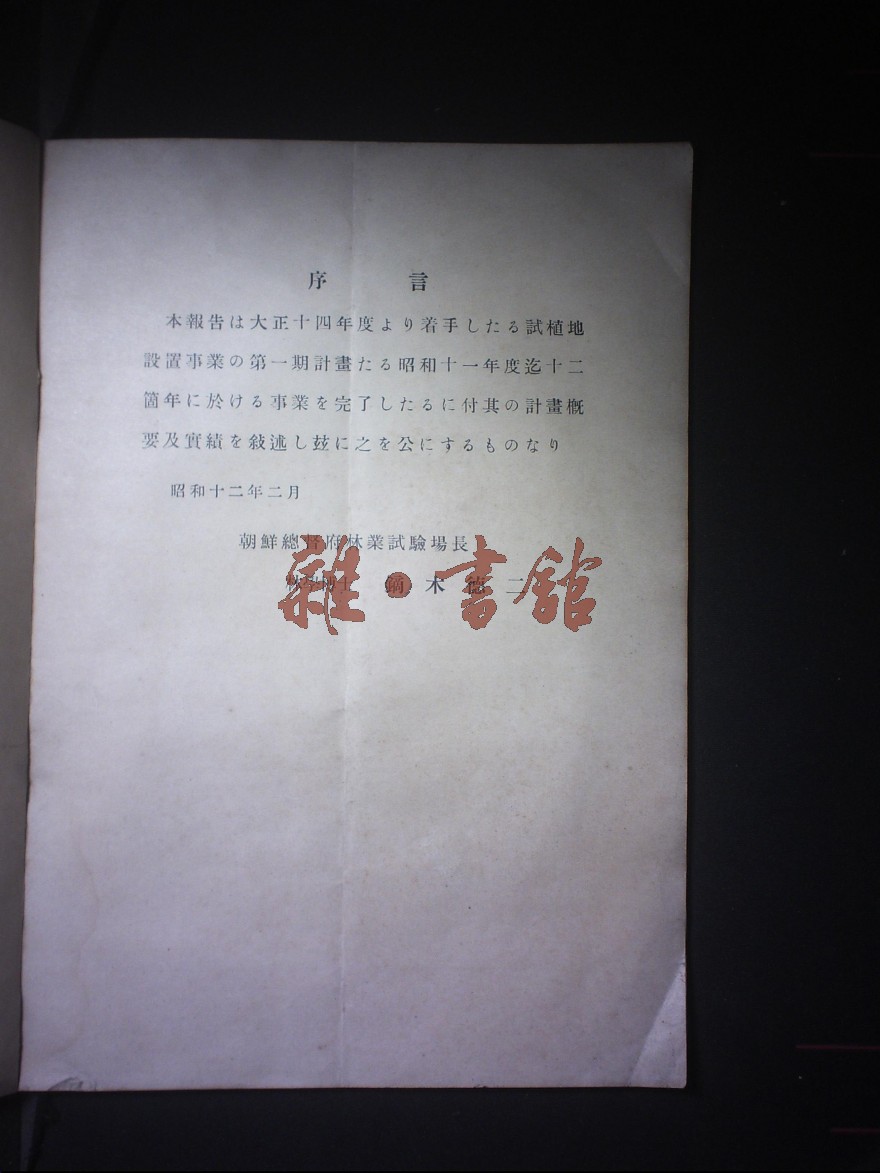 序言
本報告は大正十四年度より着手したる試植地
設置事業の第一期計畫たる昭和十一年度迄十二
箇年に於ける事業を完了したるに付其の計畫槪
要及實績を敍述し玆に之を公にするものなり
昭和十二年二月
朝鮮總督府林業試驗場長
林學博士 鏑木德二
雜·書館